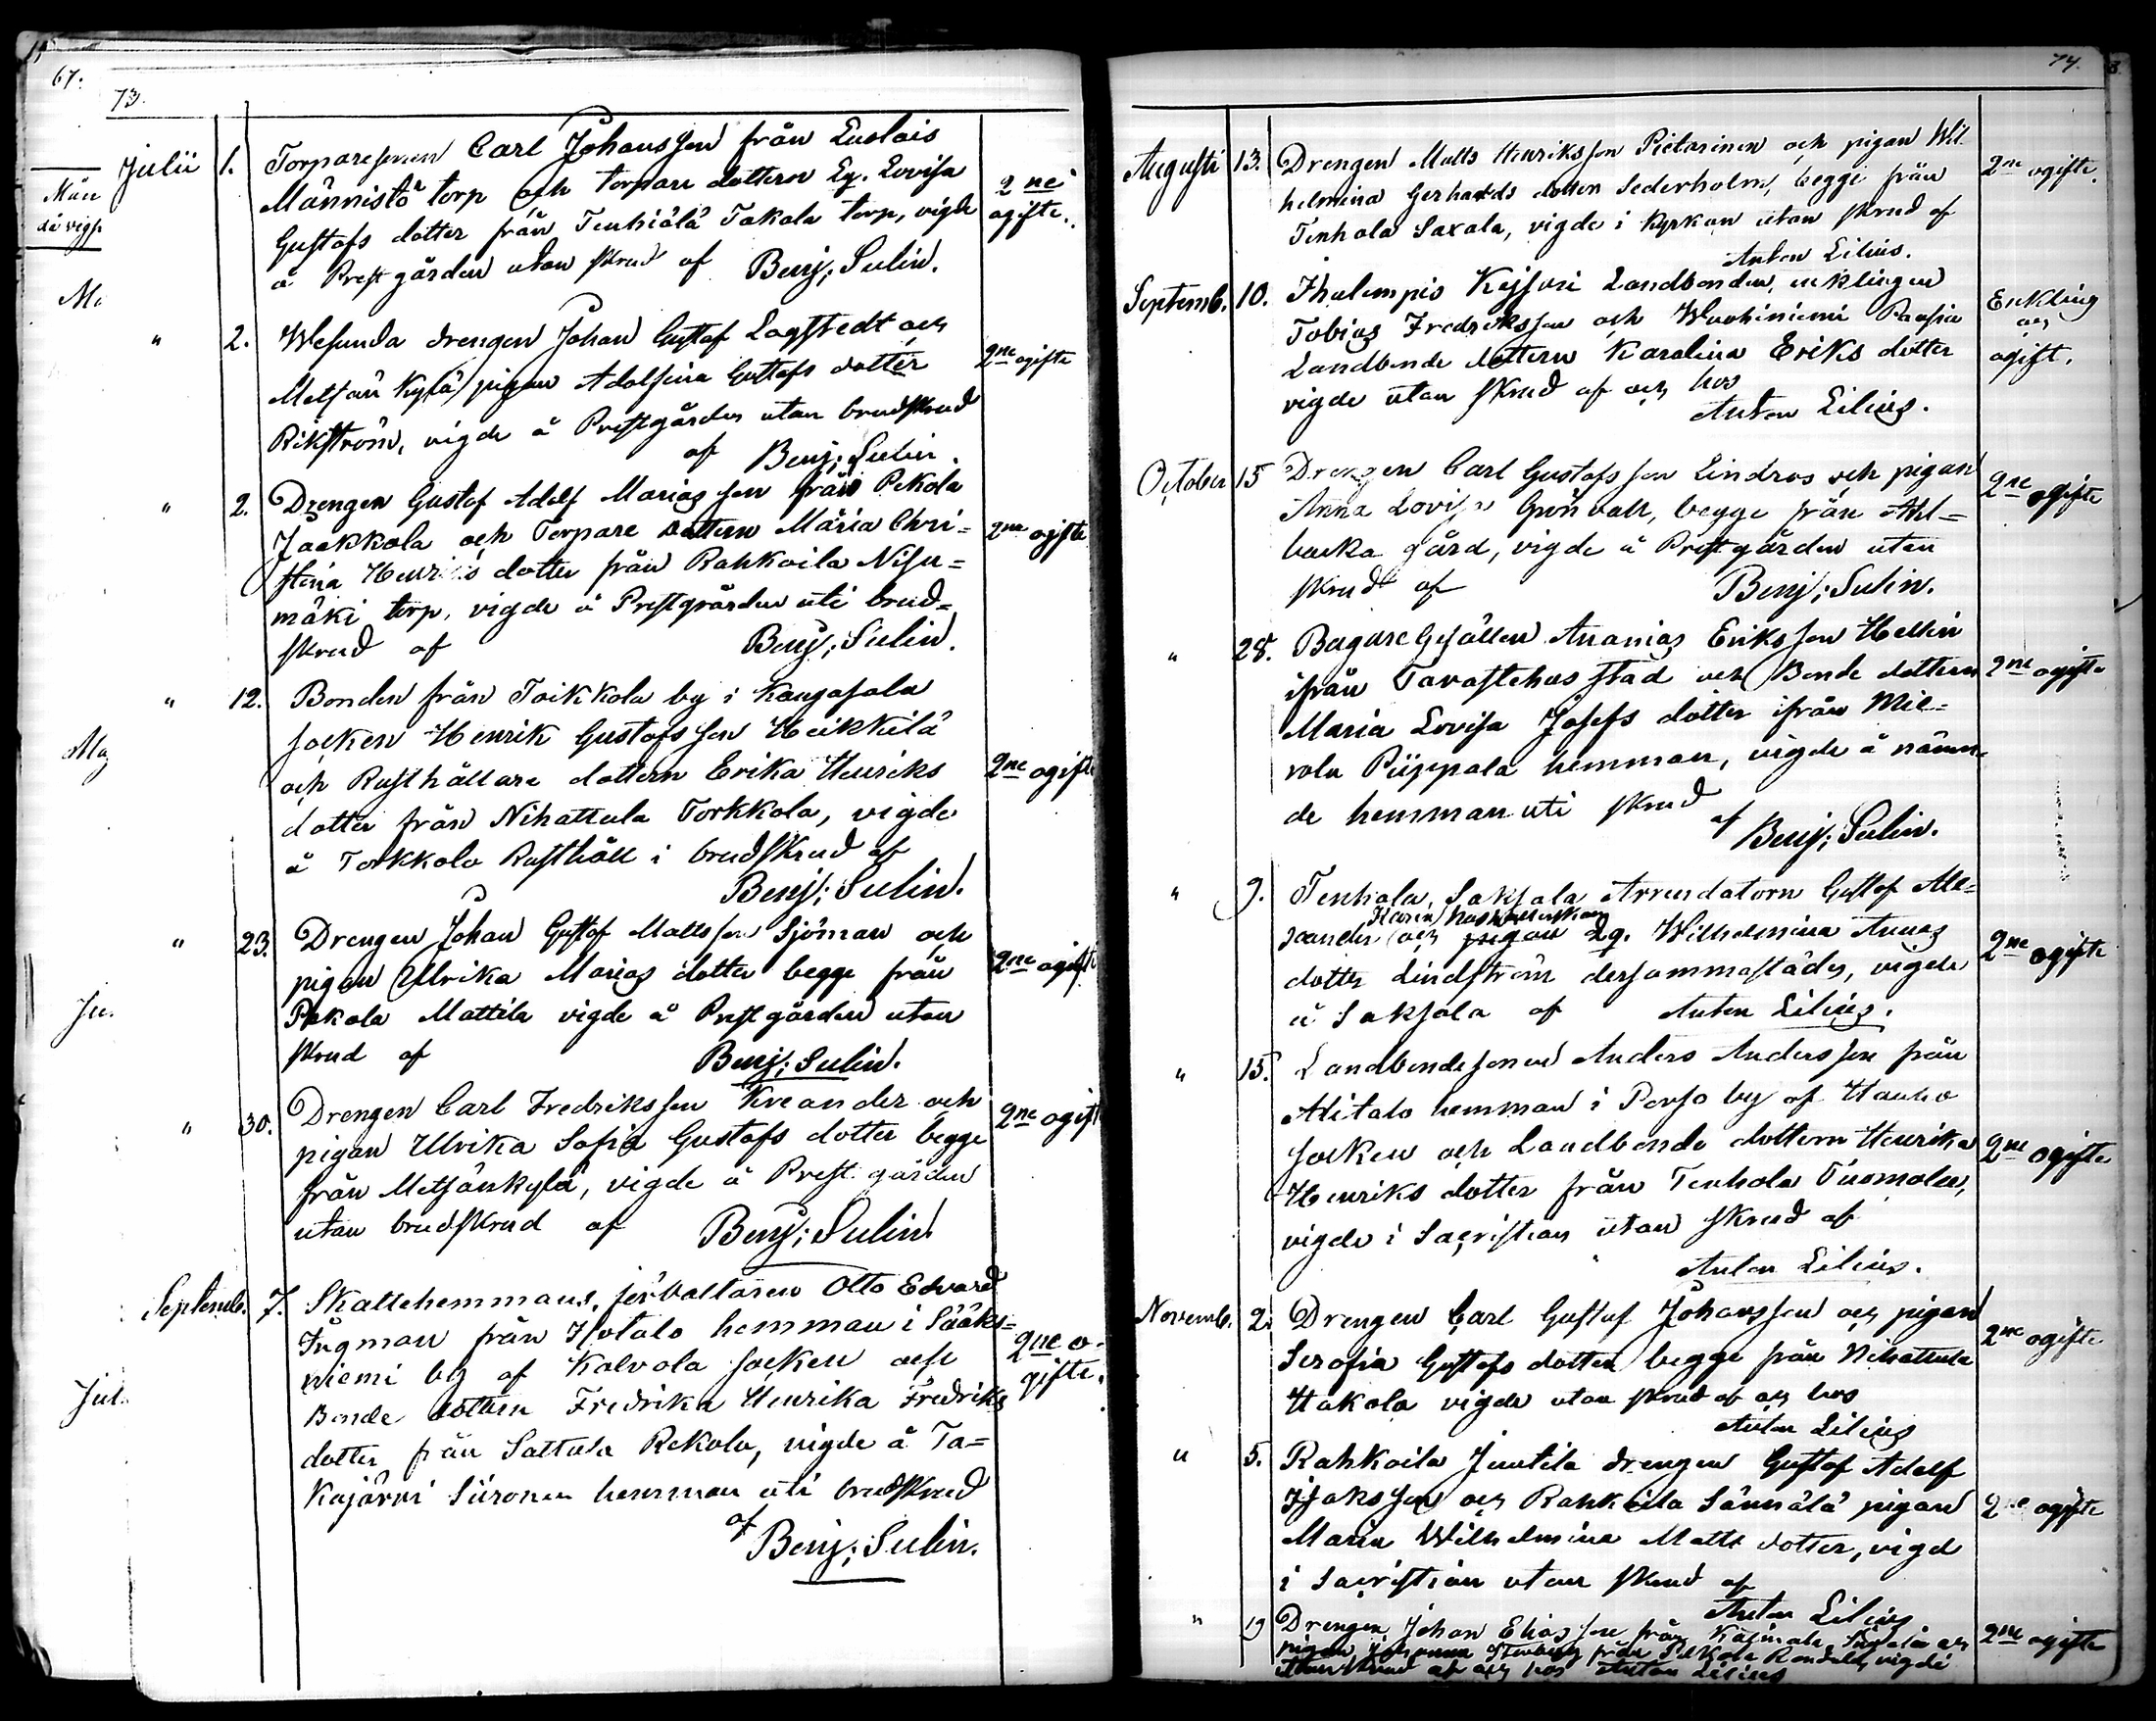 67.
73.
Julii 1. Torparesonen Carl Johansson från Luolais
Männistö torp och torpare dottern Eg. Lovisa
Gustafs dotter från Tenhiälä Takala torp, vigde
å Prestgården utan skrud af Benj; Sulin.
2ne ogifte.
" 2. Wesunda drengen Johan Gustaf Lagstedt och
Metsänkylä pigan Adolfina Gustafs dotter
Rikström, vigde å Prestgården utan brudskrud
af Benj; Sulin.
2ne ogifte
" 2. Drengen Gustaf Adolf Mariasson från Pekola
Jaakkola och Torpare dottern Maria Chri=
stina Henriks dotter från Rahkoila Nisu=
mäki torp, vigde å Prestgården uti brud=
skrud af Benj; Sulin.
2ne ogifte
" 12. Bonden från Toikkola by i Kangasala
socken Henrik Gustafsson Heikkilä
och Rusthållare dottern Erika Henriks
dotter från Nihattula Torkkola, vigde
å Torkkola Rusthåll i brudskrud af
Benj; Sulin.
2ne ogifte
" 23. Drengen Johan Gustaf Mattsson Sjöman och
pigan Ulrika Marias dotter begge från
Pekola Mattila vigde å Prestgården utan
skrud af Benj; Sulin.
2ne ogifte
" 30. Drengen Carl Fredriksson Kreander och
pigan Ulrika Sofia Gustafs dotter begge
från Metsänkylä, vigde å Prestgården
utan brudskrud af Benj; Sulin.
2ne ogift
Septemb. 7. Skattehemmans förvaltaren Otto Edvard
Ingman från Isotalo hemman i Sääks=
niemi by af Kalvola socken och
Bonde dottern Fredrika Henrika Fredriks
dotter från Sattula Rekola, vigde å Ta=
kajärvi Siironen hemman uti brudskrud
af Benj; Sulin.
2ne o-
gifte.
74.
Augusti 13. Drengen Matts Henriksson Pietarinen och pigan Wil
helmina Gerhards dotter Sederholm, begge från
Tenhola Saxala, vigde i Kyrkan utan skrud af
Anton Lilius.
2ne ogifte.
Septemb. 10. Ihalempis Kejsari Landbonden, enklingen
Tobias Fredriksson och Wuohiniemi Paasia
Landbonde dottern Karolina Eriks dotter
vigde utan skrud af och hos
Anton Lilius.
Enkling
och
ogift.
October 15 Drengen Carl Gustafsson Lindros och pigan
Anna Lovisa Grönvall, begge från Ahl=
backa gård, vigde å Prestgården utan
skrud af Benj; Sulin.
2ne ogifte
" 28. Bagare Gesällen Ananias Eriksson Hellin
ifrån Tavastehus stad och Bonde dottern
Maria Lovisa Josefs dotter ifrån Mie=
rola Piippala hemman, vigde å nämn=
de hemman uti skrud
af Benj; Sulin.
2ne ogifte
" 9. Tenhola, Saksala Arrendatorn Gustaf Ale=
xander och pigan Eg. Wilhelmina Annas
dotter Lindström dersammastädes, vigde
å Saksala af Anton Lilius.
2ne ogifte
" 15. Landbondesonen Anders Andersson från
Alitalo hemman i Porso by af Hauho
socken och Landbonde dottern Henrika
Henriks dotter från Tenhola Tuomola,
vigde i Sacristian utan skrud af
Anton Lilius.
2ne ogifte
Novemb. 2. Drengen Carl Gustaf Johansson och pigan
Serafia Gustafs dotter begge från Nihattula
Hakala vigde utan skrud af och hos
Anton Lilius
2ne ogifte
" 5. Rahkoila Juutila drengen Gustaf Adolf
Isaksson och Rahkoila Sännälä pigan
Maria Wilhelmina Matts dotter, vigd
i Sacristian utan skrud af
Anton Lilius
2ne ogifte
" 19 Drengen Johan Eliasson från och
pigan Johanna från Pekola vigde
utan skrud af och hos Anton Lilius
2ne ogifte